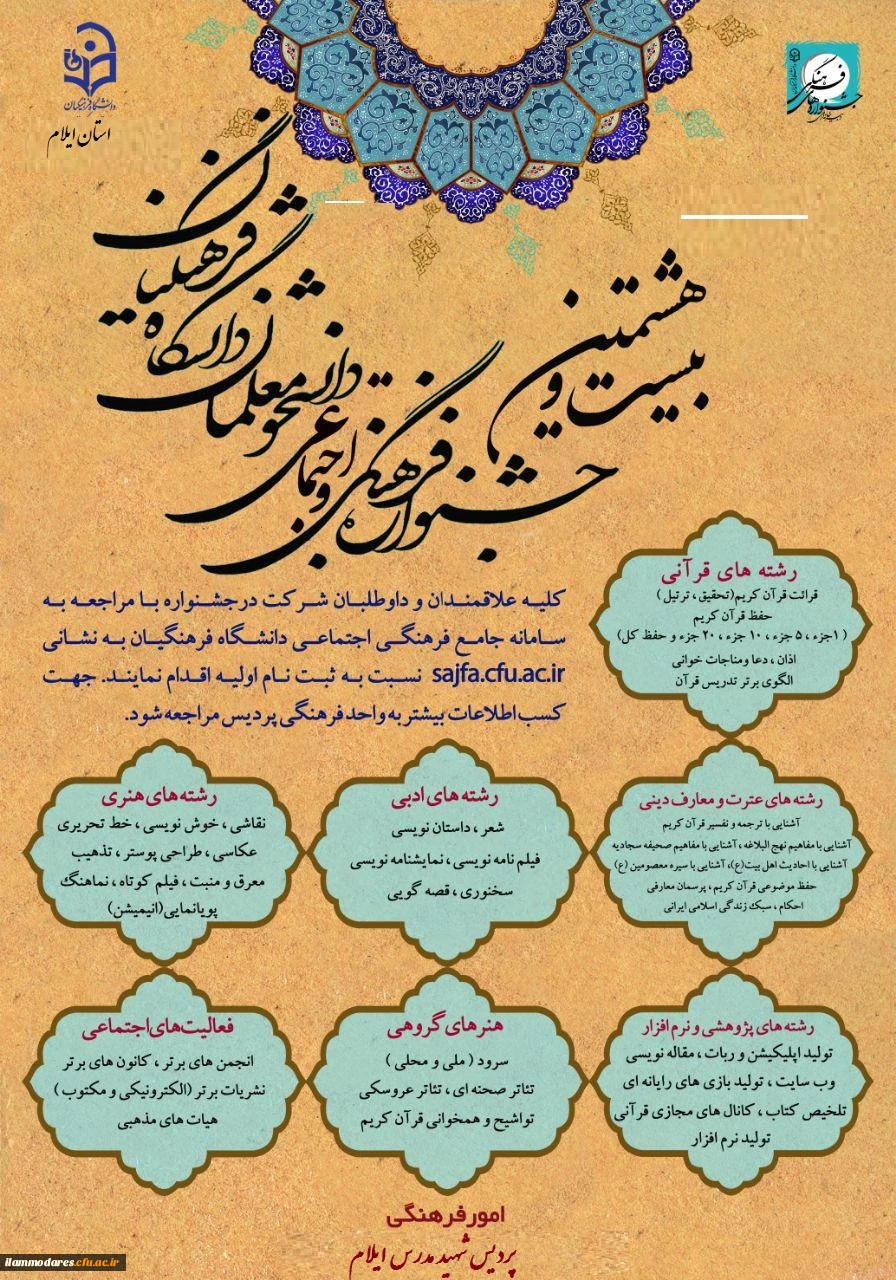 دانشگاه فرهنگیان
استان ایلام
جشنواره های فرهنگی
بیست و هشتمین
جشنواره فرهنگی و اجتماعی
دانشجو معلمان دانشگاه فرهنگیان
کلیه علاقمندان و داوطلبان شرکت درجشنواره با مراجعه به
سامانه جامع فرهنگی اجتماعی دانشگاه فرهنگیان به نشانی
sajfa.cfu.ac.ir نسبت به ثبت نام اولیه اقدام نمایند. جهت
کسب اطلاعات بیشتر به واحد فرهنگی پردیس مراجعه شود.
رشته های قرآنی
قرائت قرآن کریم(تحقیق، ترتیل )
حفظ قرآن کریم
( ۱جزء ، ۵ جزء ، ۱۰ جزء ، ۲۰ جزء و حفظ کل)
اذان ، دعا ومناجات خوانی
الگوی برتر تدریس قرآن
رشته های عترت و معارف دینی
آشنایی با ترجمه و تفسیر قرآن کریم
آشنایی با مفاهیم نهج البلاغه ، آشنایی با مفاهیم صحیفه سجادیه
آشنایی با احادیث اهل بیت(ع)، آشنایی با سیره معصومین (ع)
حفظ موضوعی قرآن کریم ، پرسمان معارفی
احکام ، سبک زندگی اسلامی ایرانی
رشته های ادبی
شعر ، داستان نویسی
فیلم نامه نویسی ، نمایشنامه نویسی
سخنوری ، قصه گویی
رشته های هنری
نقاشی ، خوش نویسی ، خط تحریری
عکاسی ، طراحی پوستر ، تذهیب
معرق و منبت ، فیلم کوتاه ، نماهنگ
پویانمایی(انیمیشن)
رشته های پژوهشی و نرم افزار
تولید اپلیکیشن و ربات ، مقاله نویسی
وب سایت ، تولید بازی های رایانه ای
تلخیص کتاب ، کانال های مجازی قرآنی
تولید نرم افزار
هنرهای گروهی
سرود ( ملی و محلی )
تئاتر صحنه ای ، تئاتر عروسکی
تواشیح و همخوانی قرآن کریم
فعالیت های اجتماعی
انجمن های برتر ، کانون های برتر
نشریات برتر (الکترونیکی و مکتوب )
هیات های مذهبی
امور فرهنگی
پردیس شهید مدرس ایلام
ilammodares.cfu.ac.ir